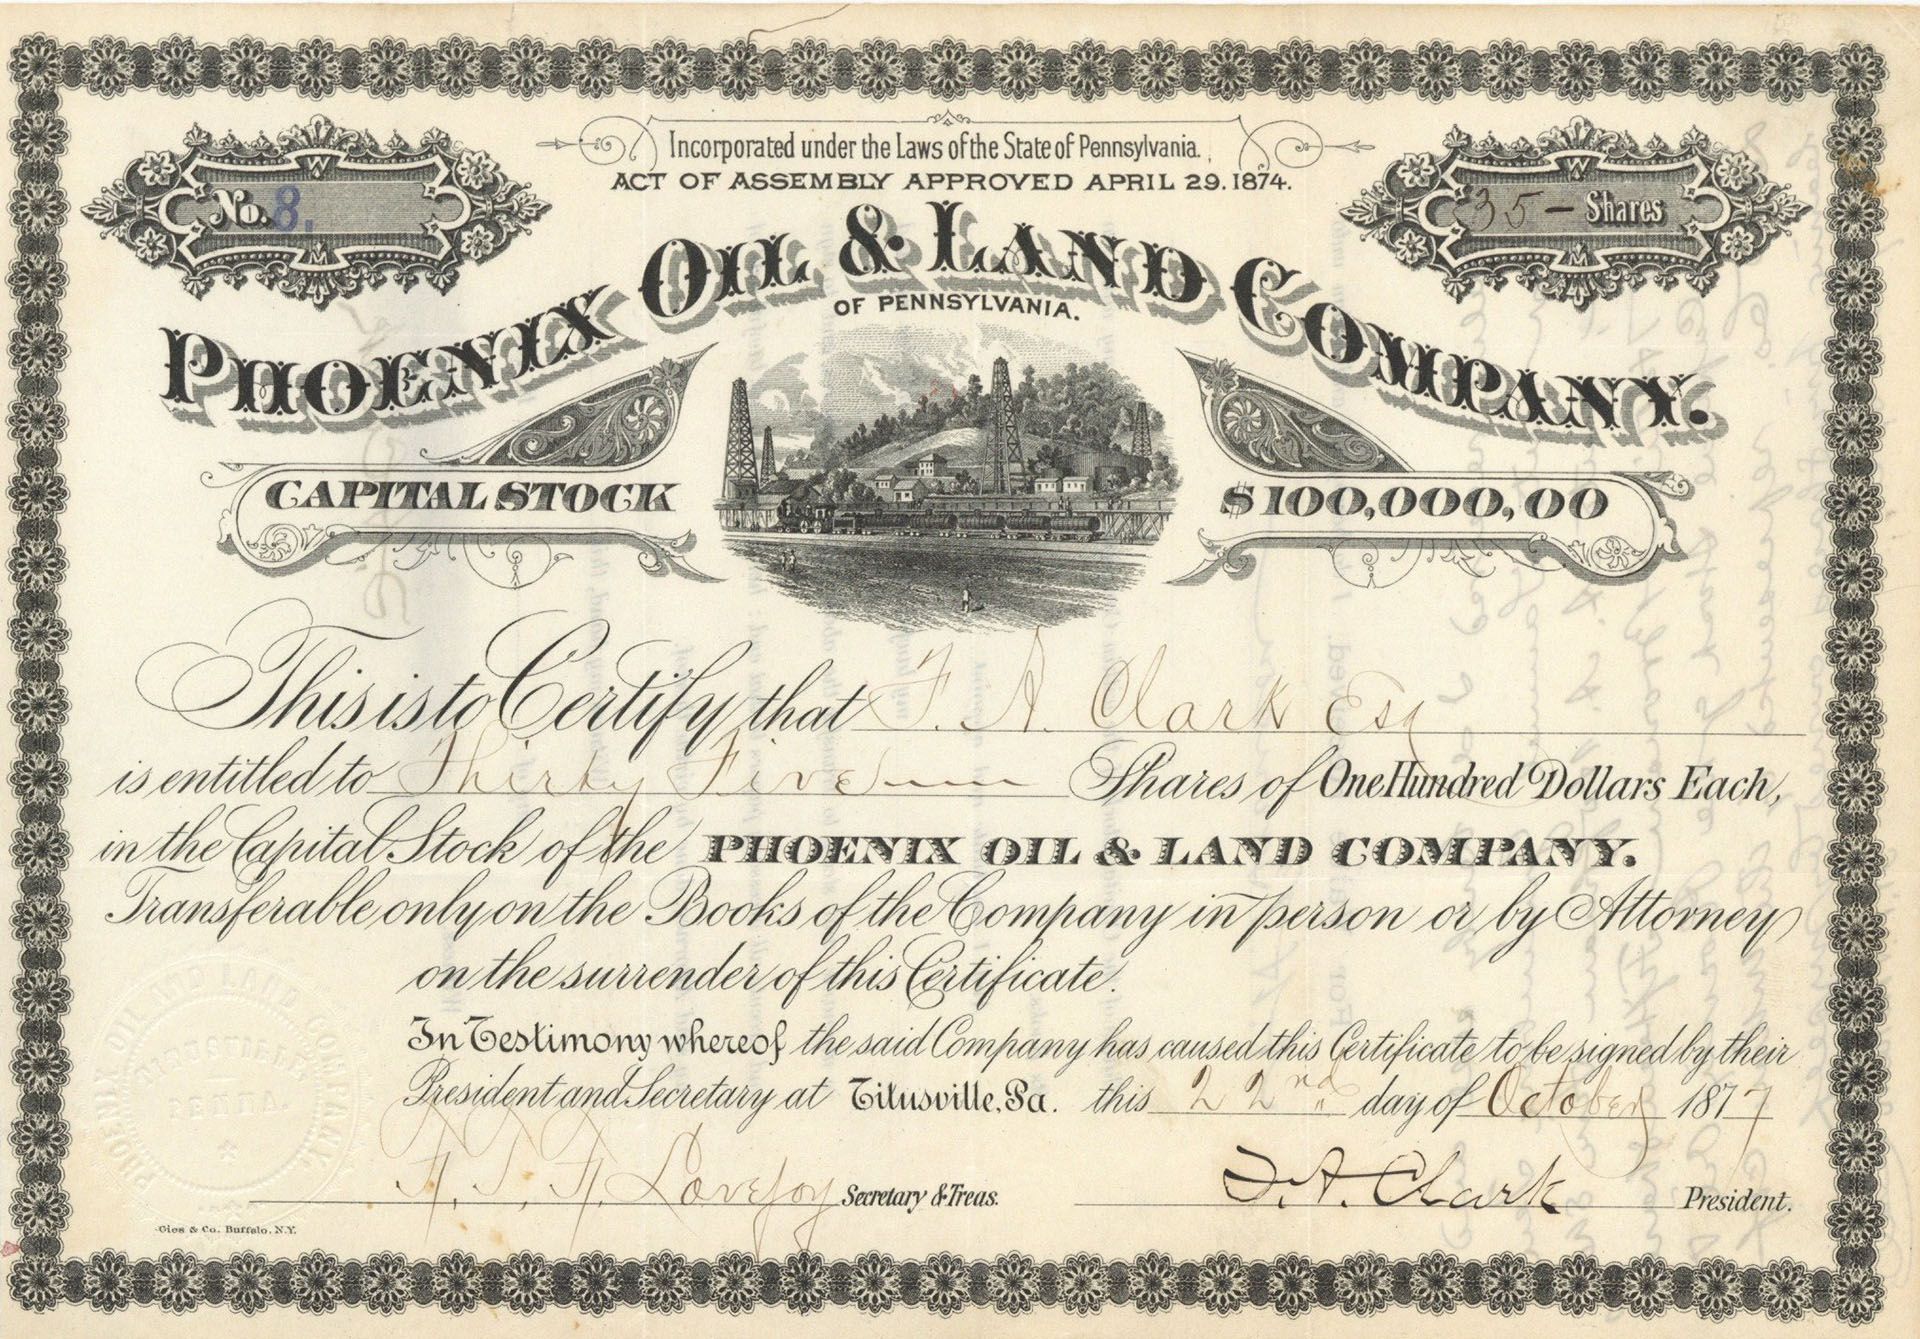 Incorporated under the Laws of the State of Pennsylvania.
ACT OF ASSEMBLY APPROVED APRIL 29. 1874.
No. 8.
35 — Shares
PHOENIX OIL & LAND COMPANY.
OF PENNSYLVANIA.
CAPITAL STOCK $100,000,00
This is to Certify that F. A. Clark Esq
is entitled to Thirty Five Shares of One Hundred Dollars Each,
in the Capital Stock of the PHOENIX OIL & LAND COMPANY.
Transferable only on the Books of the Company in person or by Attorney
on the surrender of this Certificate.
In Testimony whereof the said Company has caused this Certificate to be signed by their
President and Secretary at Titusville, Pa. this 22nd day of October 1877
Lovejoy Secretary & Treas. F. A. Clark President.
PHOENIX OIL AND LAND COMPANY
Gies & Co. Buffalo, N.Y.